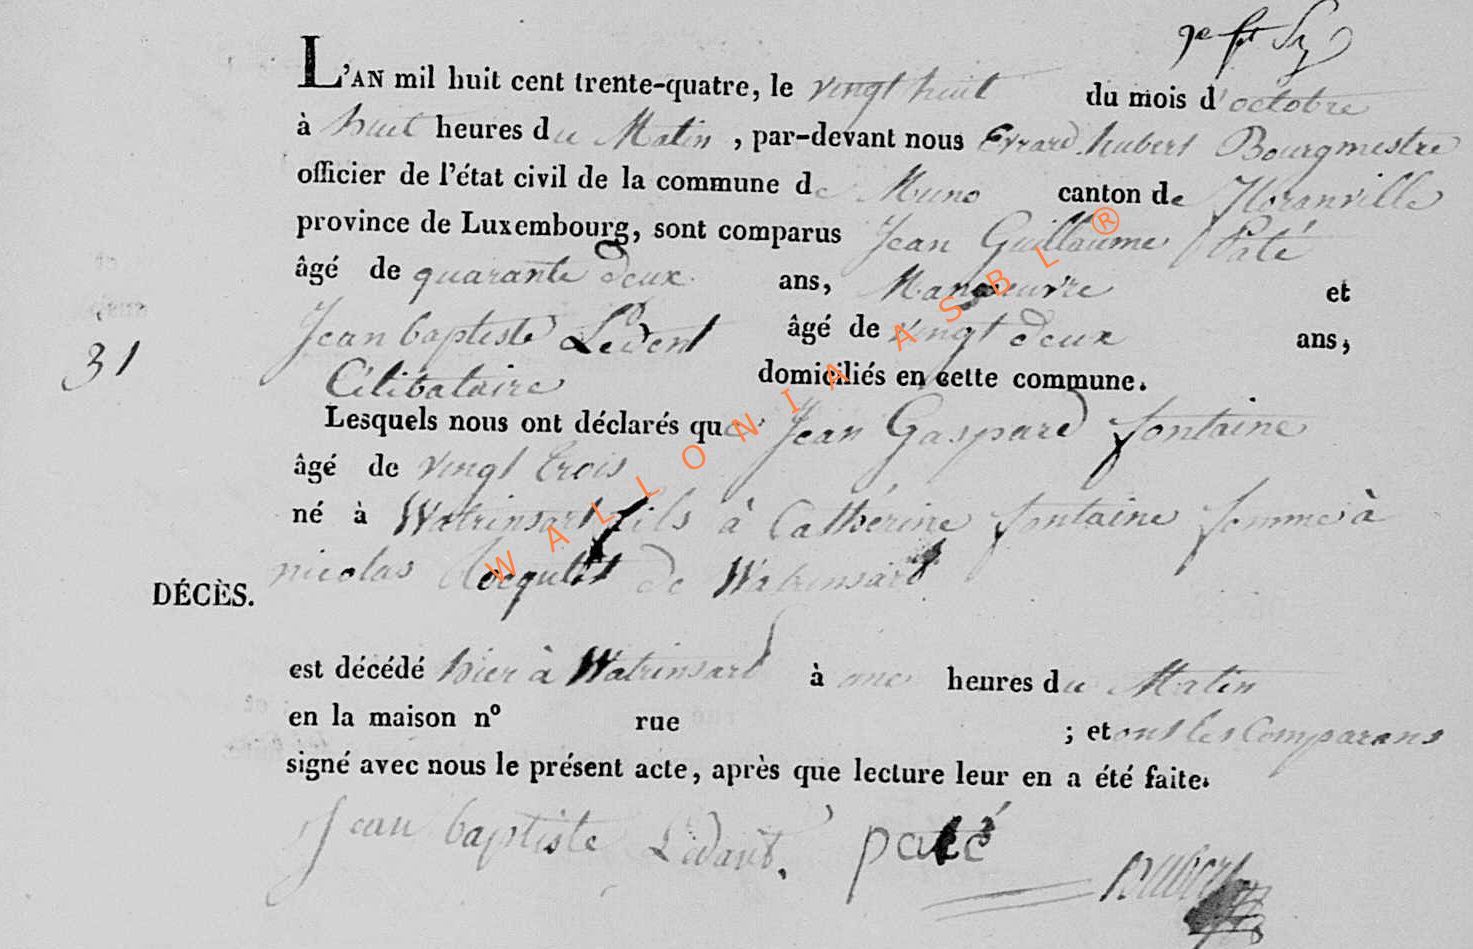 L'AN mil huit cent trente-quatre, le vingt huit du mois d'octobre
à huit heures du Matin, par-devant nous Evrard hubert Bourgmestre
officier de l'état civil de la commune de Muno canton de Floranville
province de Luxembourg, sont comparus Jean Guillaume Paté
âgé de quarante deux ans, Manoeuvre et
Jean baptiste Ledent âgé de vingt deux ans,
31
Célibataire domiciliés en cette commune.
Lesquels nous ont déclarés que Jean Gaspard fontaine
âgé de vingt trois
né à Watrinsart fils à Catherine fontaine femme à
nicolas de Watrinsart
DÉCÈS.
est décédé hier à Watrinsart à onze heures du Matin
en la maison nº rue ; et ont les Comparans
signé avec nous le présent acte, après que lecture leur en a été faite.
Jean baptiste Ledant. paté
hubert
WALLONIA ASBL®